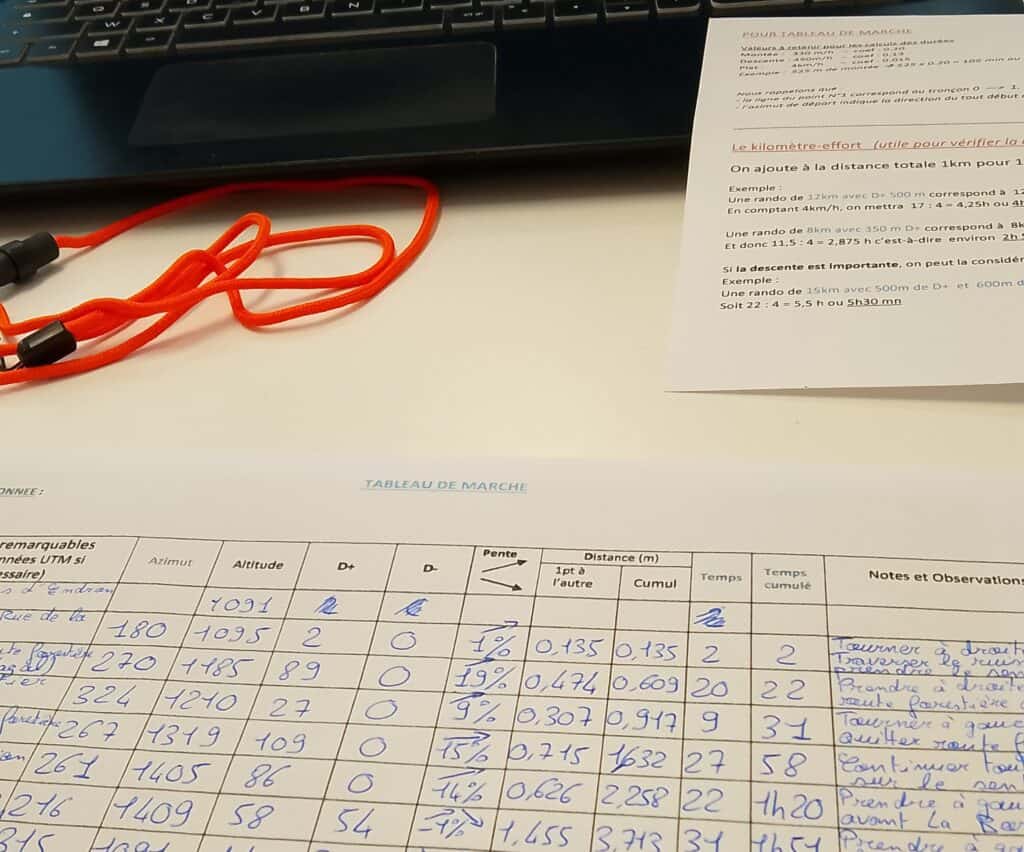 Q W X C V B N
POUR TABLEAU DE MARCHE
Valeurs à retenir pour les calculs des durées
Montée : 330 m/h – coef : 0.20
Descente : 450m/h – coef : 0.13
Plat : 4km/h – coef : 0.015
Exemple : 525 m de montée → 525 x 0.20 = 105 min ou
Nous rappelons que
- la ligne du point N°1 correspond au tronçon 0 —> 1.
- l'azimut de départ indique la direction du tout début
Le kilomètre-effort (utile pour vérifier la
On ajoute à la distance totale 1km pour 1
Exemple :
Une rando de 12km avec D+ 500 m correspond à 12
En comptant 4km/h, on mettra 17 : 4 = 4,25h ou
Une rando de 8km avec 350 m D+ correspond à 8k
Et donc 11,5 : 4 = 2,875 h c'est-à-dire environ 2h
Si la descente est importante, on peut la considér
Exemple :
Une rando de 15km avec 500m de D+ et 600m d
Soit 22 : 4 = 5,5 h ou 5h30 mn
ONNEE :
TABLEAU DE MARCHE
remarquables
nnées UTM si
essaire)
Azimut Altitude D+ D- Pente Distance (m) 1pt à l'autre Cumul Temps Temps cumulé Notes et Observations
s d'Endran 1091
Rue de la 180 1095 2 0 1% 0,135 0,135 2 2 Tourner à droite
Traverser le ruis
prendre le sen
forestière 270 1185 89 0 19% 0,474 0,609 20 22 Prendre à droite
route forestière
324 1210 27 0 9% 0,307 0,917 9 31 Tourner à gauc
Quitter route f
forestière 267 1319 109 0 15% 0,715 1,632 27 58 Continuer tou
sur le sen
261 1405 86 0 14% 0,626 2,258 22 1h20 Prendre à gau
avant La
216 1409 58 54 -1% 1,455 3,713 31 1h51 Prendre à ga
315